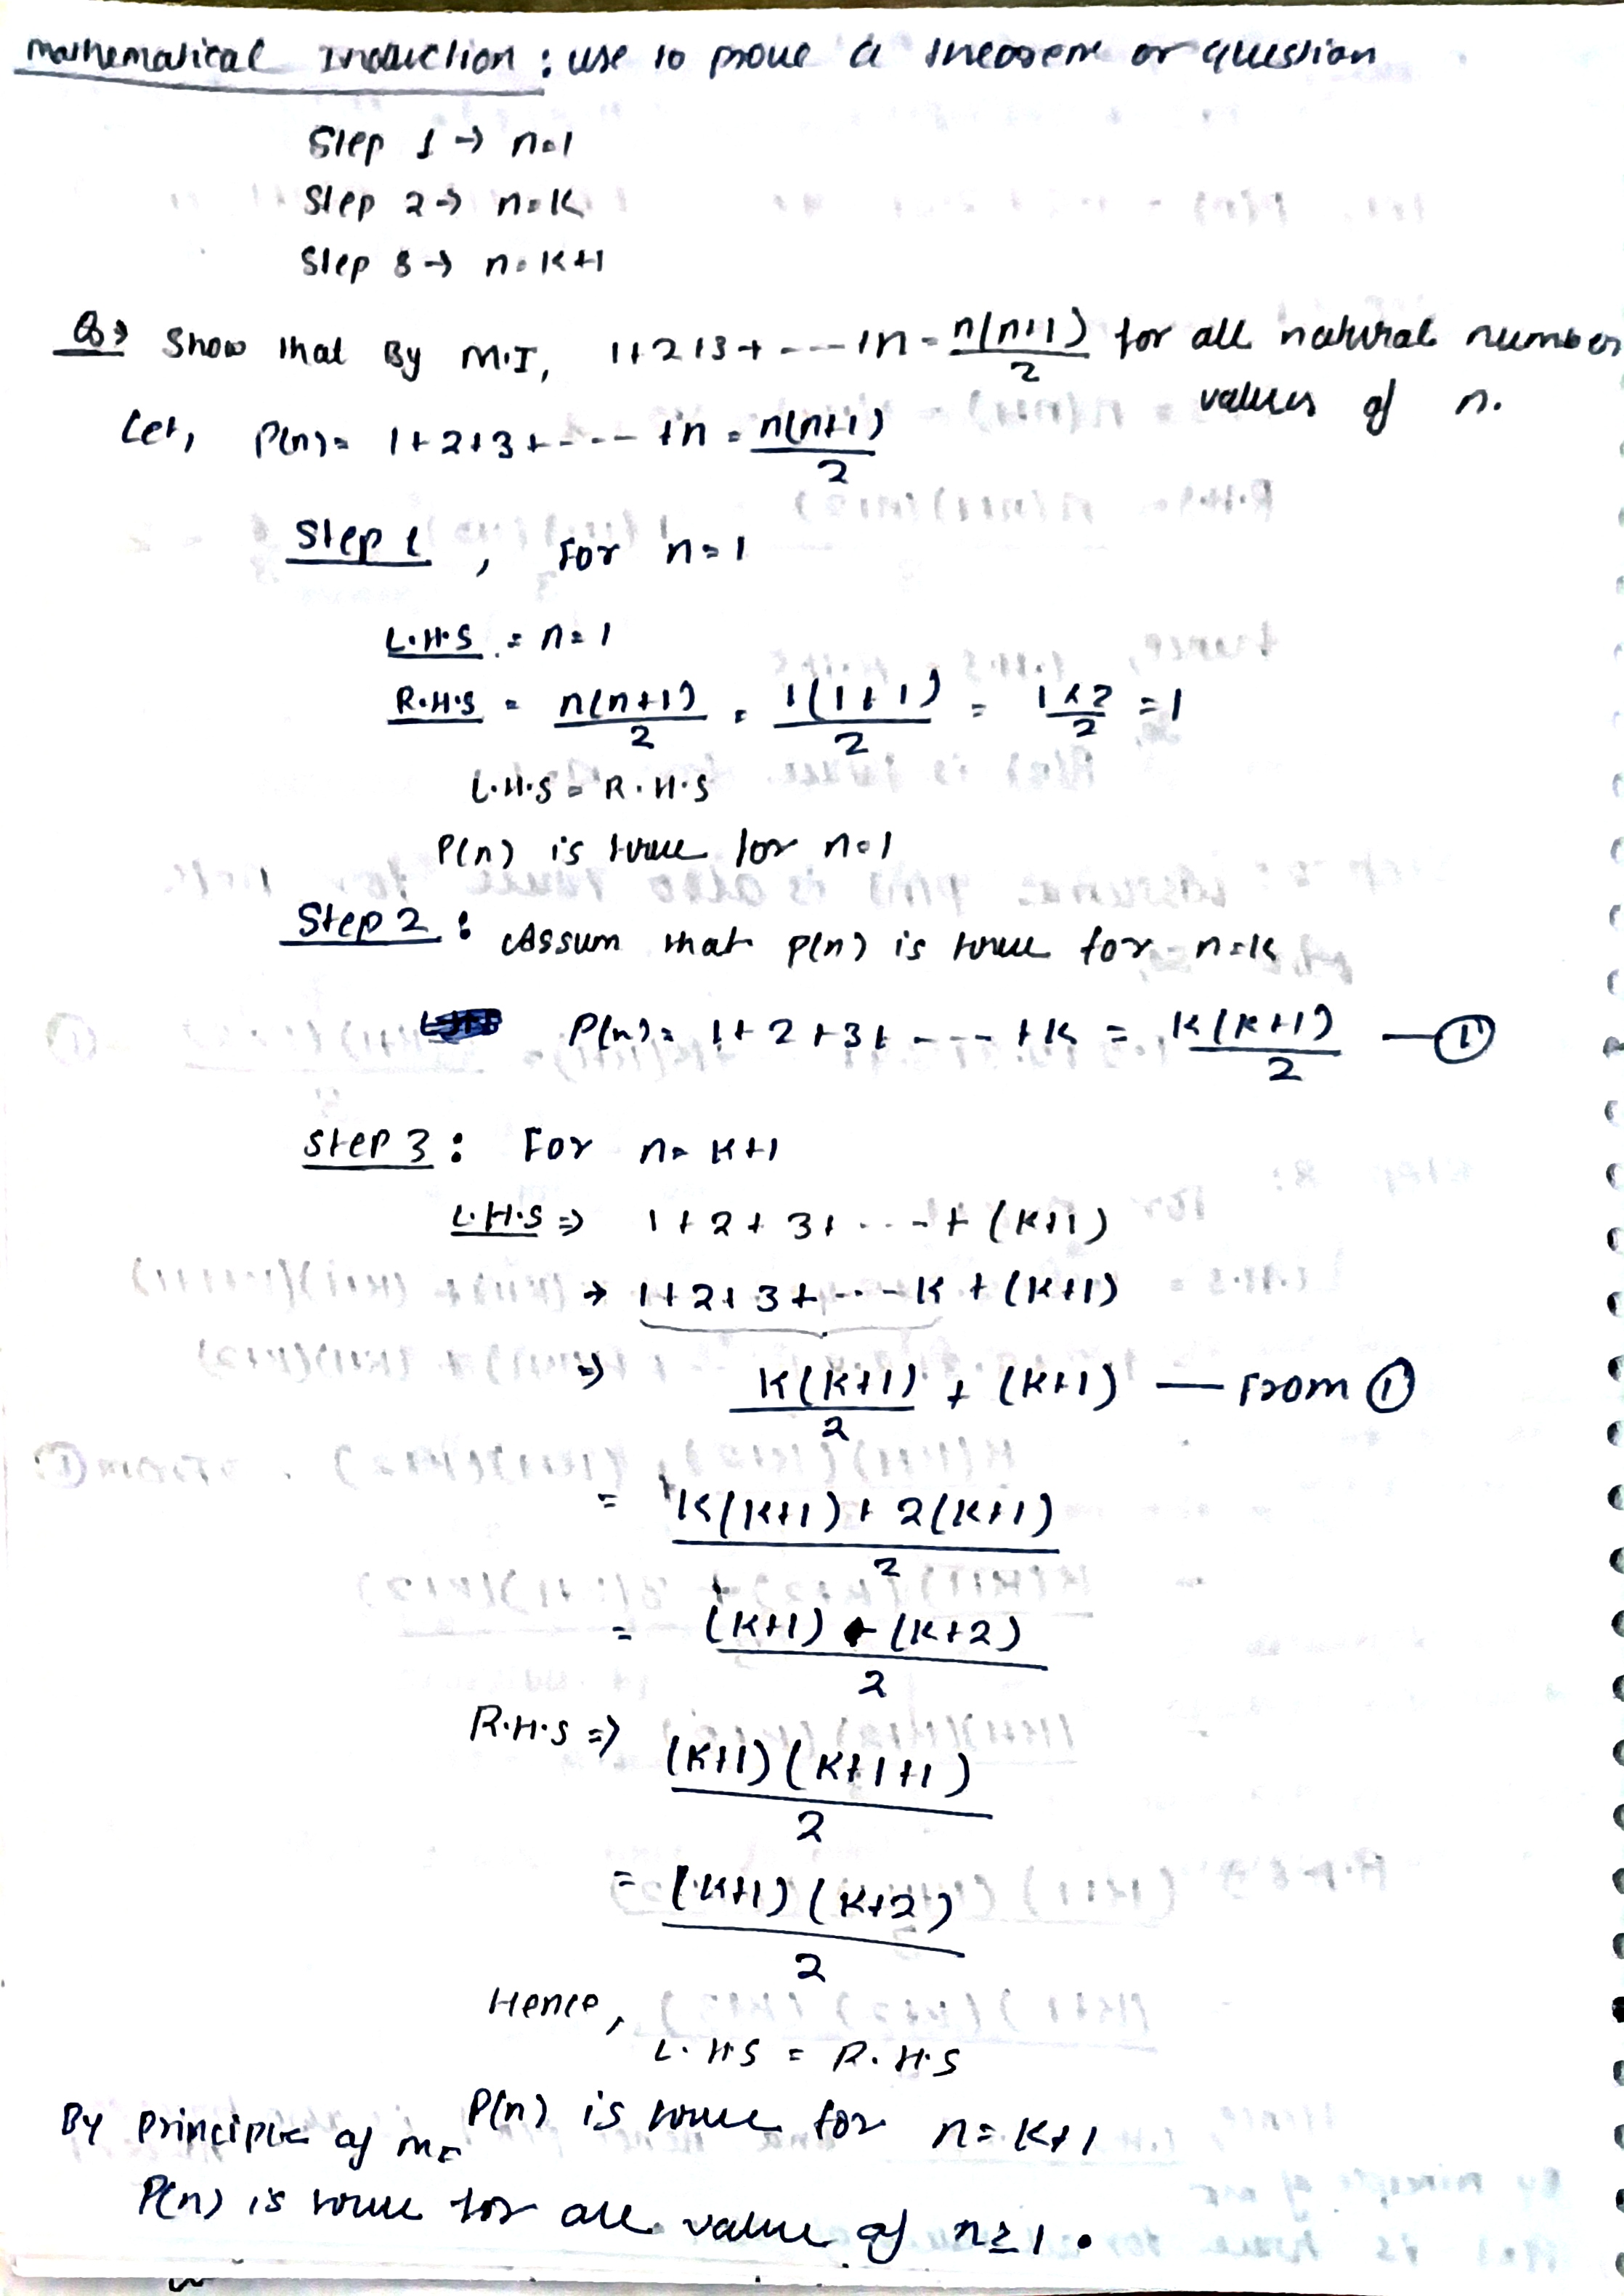 Mathematical Induction : use to prove a theorem or question
Step 1 → n=1
Step 2 → n=k
Step 3 → n=k+1
Q→ Show that By M.I, 1+2+3+----+n = n(n+1)/2 for all natural number
values of n.
Let, P(n)= 1+2+3+---- +n = n(n+1)/2
Step 1 , For n=1
L.H.S = n=1
R.H.S = n(n+1)/2 = 1(1+1)/2 = 1×2/2 = 1
L.H.S = R.H.S
P(n) is true for n=1
Step 2 : Assum that P(n) is true for n=k
P(n)= 1+2+3+ ---- +k = k(k+1)/2 —①
Step 3 : For n= k+1
L.H.S ⇒ 1+2+3+ ----+ (k+1)
→ 1+2+3+----k + (k+1)
⇒ k(k+1)/2 + (k+1) — From ①
= k(k+1)+2(k+1)/2
= (k+1) (k+2)/2
R.H.S ⇒ (k+1)(k+1+1)/2
= (k+1)(k+2)/2
Hence,
L.H.S = R.H.S
P(n) is true for n= k+1
By principle of MI
P(n) is true for all value of n≥1.